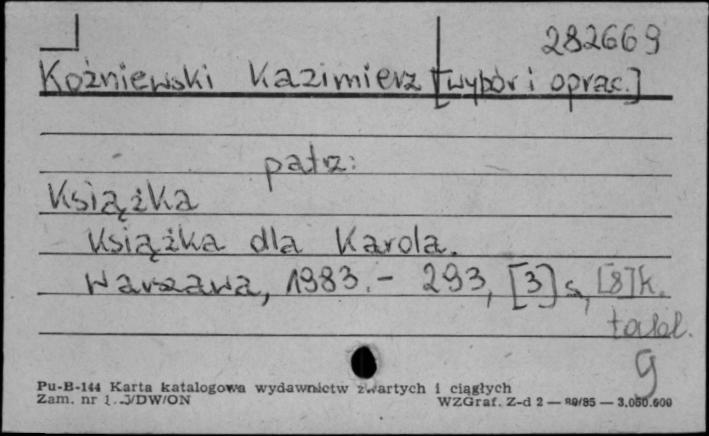 282669
Koźniewski Kazimierz [wybór i oprac.]
patrz:
Książka
Książka dla Karola.
Warszawa, 1983.- 293, [3] s, [8] k.
tabl.
g
Pu-B-144 Karta katalogowa wydawnictw zwartych i ciągłych
Zam. nr /DW/ON WZGraf. Z-d 2 — 89/85 — 3.050.000